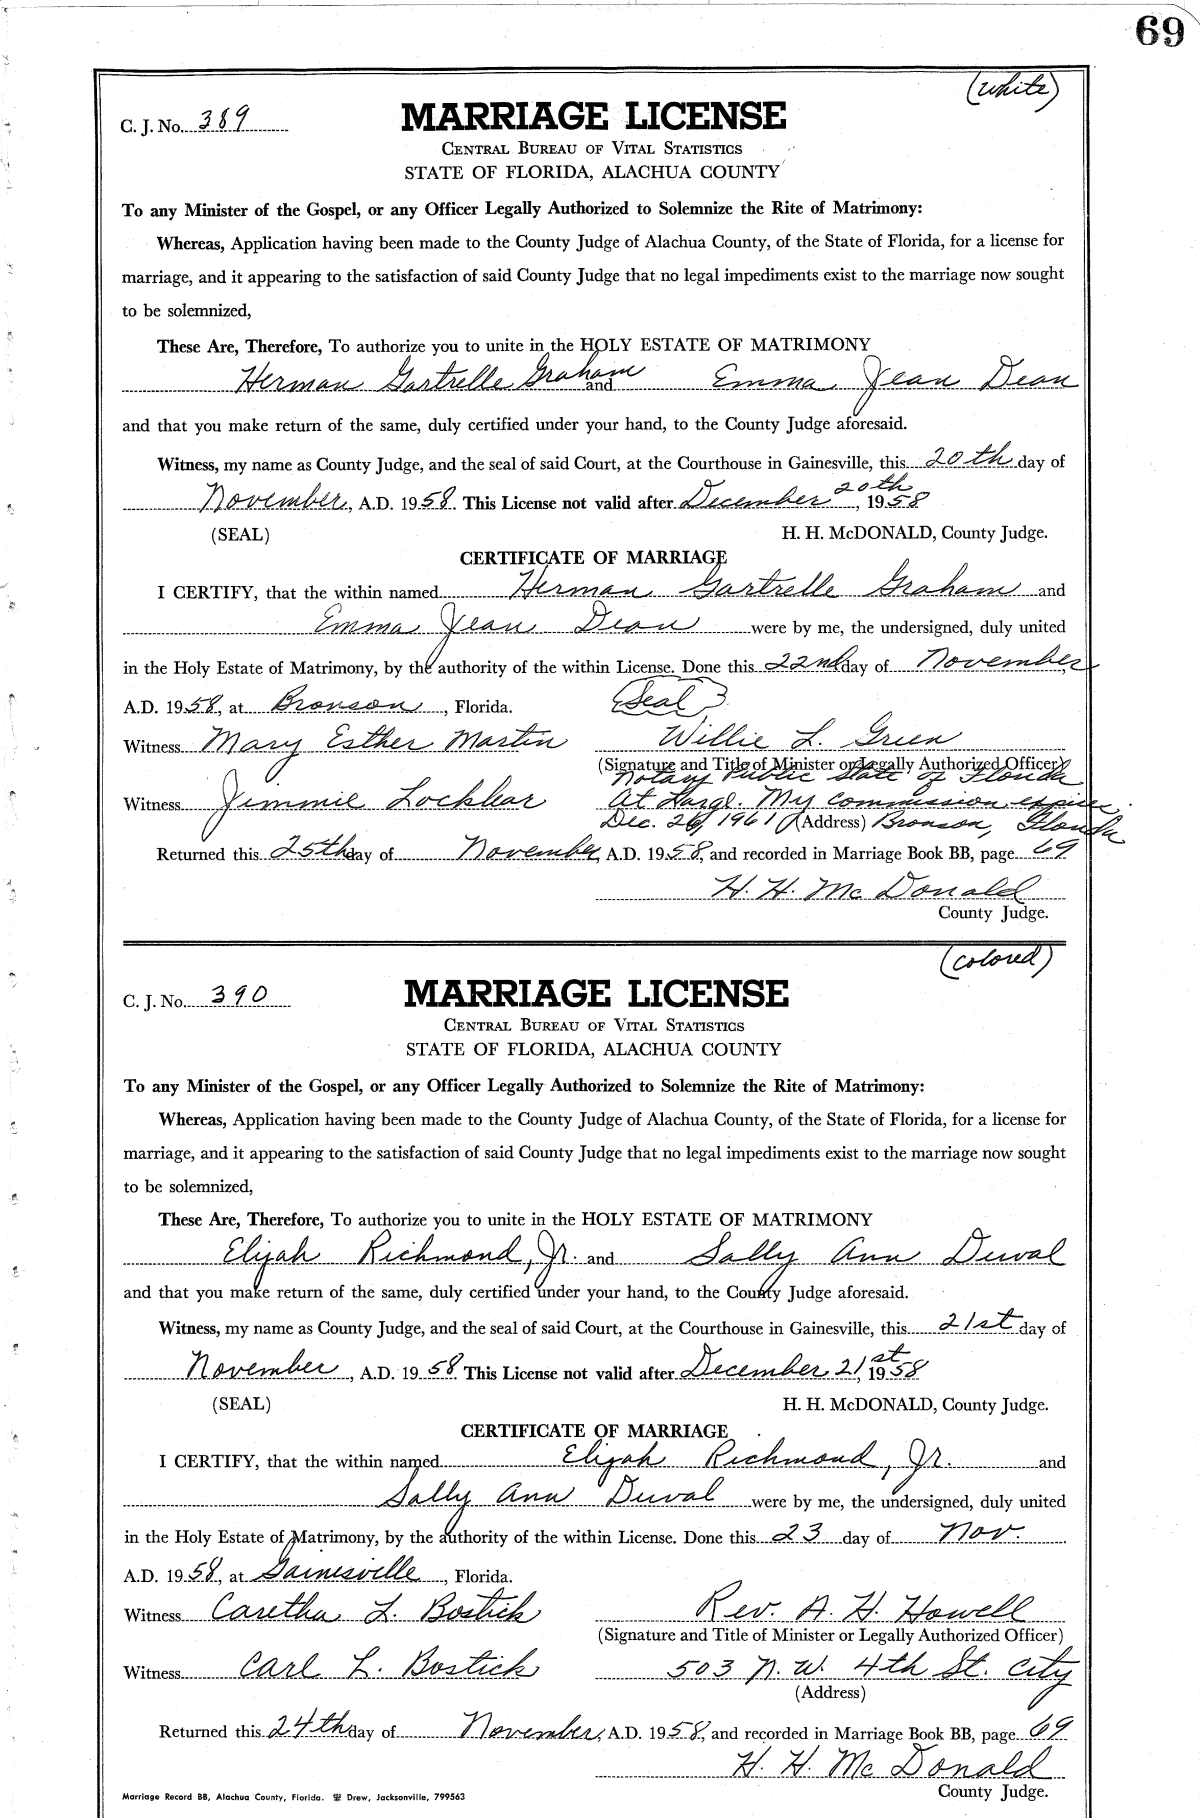 69
(white)
C. J. No. 389 MARRIAGE LICENSE
CENTRAL BUREAU OF VITAL STATISTICS
STATE OF FLORIDA, ALACHUA COUNTY
To any Minister of the Gospel, or any Officer Legally Authorized to Solemnize the Rite of Matrimony:
Whereas, Application having been made to the County Judge of Alachua County, of the State of Florida, for a license for
marriage, and it appearing to the satisfaction of said County Judge that no legal impediments exist to the marriage now sought
to be solemnized,
These Are, Therefore, To authorize you to unite in the HOLY ESTATE OF MATRIMONY
Herman Gartrelle Graham and Emma Jean Dean
and that you make return of the same, duly certified under your hand, to the County Judge aforesaid.
Witness, my name as County Judge, and the seal of said Court, at the Courthouse in Gainesville, this 20th day of
November, A.D. 1958. This License not valid after December 20th, 1958
(SEAL) H. H. McDONALD, County Judge.
CERTIFICATE OF MARRIAGE
I CERTIFY, that the within named Herman Gartrelle Graham and
Emma Jean Dean were by me, the undersigned, duly united
in the Holy Estate of Matrimony, by the authority of the within License. Done this 22nd day of November,
A.D. 1958, at Bronson, Florida. (Seal)
Witness Mary Esther Martin Willie L. Green
(Signature and Title of Minister or Legally Authorized Officer)
Notary Public State of Florida
Witness Jimmie Locklear At Large. My commission expires
Dec. 26, 1961 (Address) Bronson, Florida
Returned this 25th day of November, A.D. 1958, and recorded in Marriage Book BB, page 69
H. H. McDonald
County Judge.
(colored)
C. J. No. 390 MARRIAGE LICENSE
CENTRAL BUREAU OF VITAL STATISTICS
STATE OF FLORIDA, ALACHUA COUNTY
To any Minister of the Gospel, or any Officer Legally Authorized to Solemnize the Rite of Matrimony:
Whereas, Application having been made to the County Judge of Alachua County, of the State of Florida, for a license for
marriage, and it appearing to the satisfaction of said County Judge that no legal impediments exist to the marriage now sought
to be solemnized,
These Are, Therefore, To authorize you to unite in the HOLY ESTATE OF MATRIMONY
Elijah Richmond, Jr. and Sally Ann Duval
and that you make return of the same, duly certified under your hand, to the County Judge aforesaid.
Witness, my name as County Judge, and the seal of said Court, at the Courthouse in Gainesville, this 21st day of
November, A.D. 1958. This License not valid after December 21st, 1958
(SEAL) H. H. McDONALD, County Judge.
CERTIFICATE OF MARRIAGE
I CERTIFY, that the within named Elijah Richmond, Jr. and
Sally Ann Duval were by me, the undersigned, duly united
in the Holy Estate of Matrimony, by the authority of the within License. Done this 23 day of Nov.
A.D. 1958, at Gainesville, Florida.
Witness Caretha L. Bostick Rev. A. H. Howell
(Signature and Title of Minister or Legally Authorized Officer)
Witness Carl L. Bostick 503 N.W. 4th St. City
(Address)
Returned this 24th day of November, A.D. 1958, and recorded in Marriage Book BB, page 69
H. H. McDonald
County Judge.
Marriage Record BB, Alachua County, Florida. Drew, Jacksonville, 799563